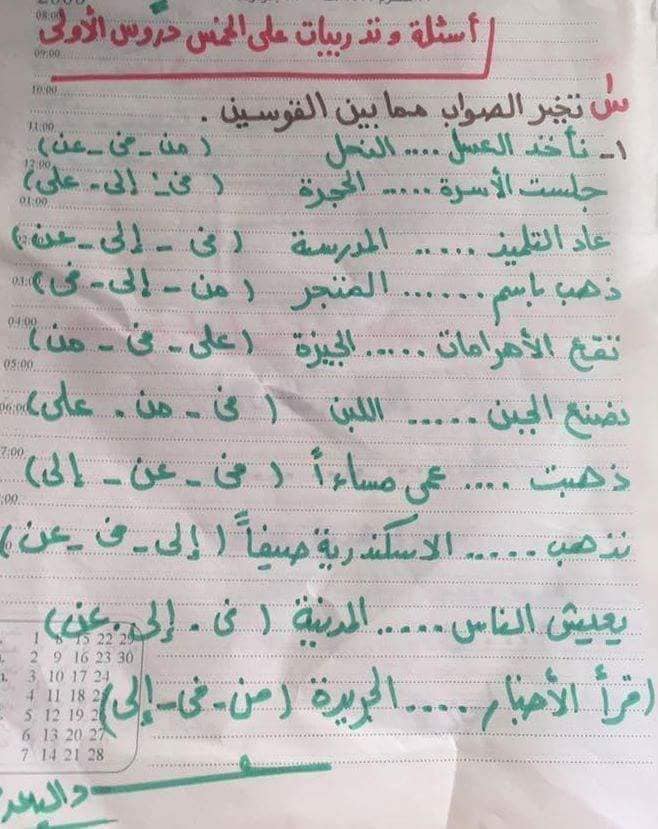 أسئلة وتدريبات على الخمس دروس الأولى
س تخير الصواب مما بين القوسين .
١- نأخذ العسل .... النحل ( من - فى - عن )
جلست الأسرة ..... الحجرة ( فى - إلى - على )
عاد التلميذ ..... المدرسة ( فى - إلى - عن )
ذهب باسم ...... المتجر ( من - إلى - فى )
تقع الأهرامات ..... الجيزة ( على - فى - من )
نصنع الجبن ..... اللبن ( فى - من - على )
ذهبت .... عمى مساءاً ( فى - عن - إلى )
نذهب ..... الاسكندرية صيفاً ( إلى - فى - عن )
يعيش الناس ..... المدينة ( فى - إلى - عن )
اقرأ الأخبار .... الجريدة ( من - فى - إلى )
08:00
09:00
10:00
11:00
12:00
01:00
03:00
04:00
05:00
06:00
7:00
:00
1 8 15 22 29
2 9 16 23 30
3 10 17 24
4 11 18 25
5 12 19 26
6 13 20 27
7 14 21 28